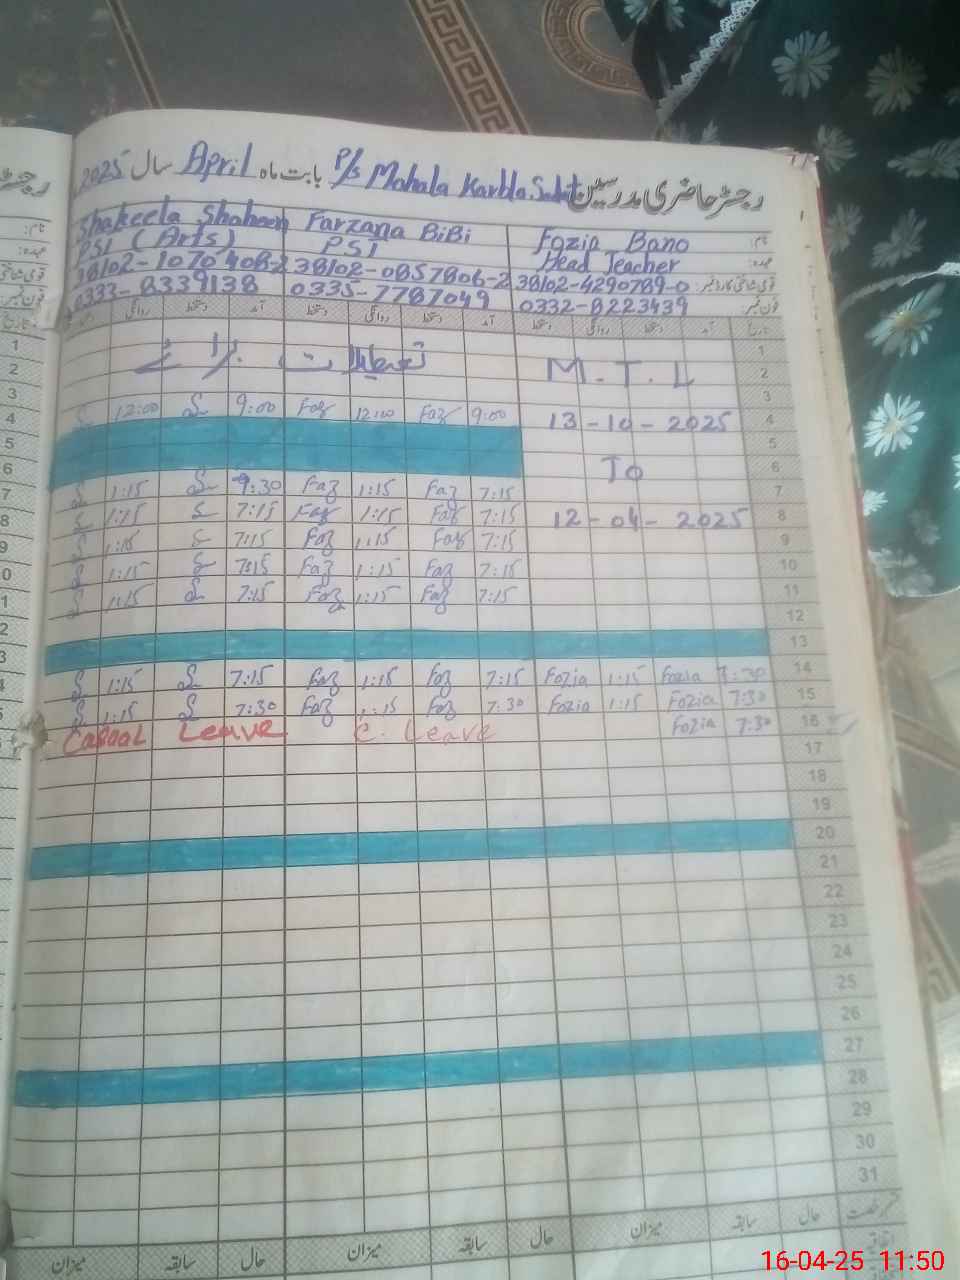 رجسٹر حاضری مدرسین P/s Mohala Karbla. Sadat بابت ماہ April سال 2025
نام: Fozia Bano Farzana BiBi Shakeela Shaheen
عہدہ: Head Teacher PST PST (Arts)
قومی شناختی کارڈ نمبر: 38102-4290789-0 38102-0857806-2 38102-1070408-2
فون نمبر: 0332-8223439 0335-7787049 0333-8339138
تاریخ آمد دستخط روانگی دستخط آمد دستخط روانگی دستخط آمد دستخط روانگی دستخط
1
2 M.T.L تعطیلات برائے
3
4 13-10-2025 9:00 Faz 12:00 Faz 9:00 S 12:00 S
5
6 TO
7 7:15 Faz 1:15 Faz 7:30 S 1:15 S
8 12-04-2025 7:15 Faz 1:15 Faz 7:15 S 1:15 S
9 7:15 Faz 1:15 Faz 7:15 S 1:15 S
10 7:15 Faz 1:15 Faz 7:15 S 1:15 S
11 7:15 Faz 1:15 Faz 7:15 S 1:15 S
12
13
14 7:30 Fozia 1:15 Fozia 7:15 Faz 1:15 Faz 7:15 S 1:15 S
15 7:30 Fozia 1:15 Fozia 7:30 Faz 1:15 Faz 7:30 S 1:15 S
16 7:30 Fozia C. Leave Casual Leave
17
18
19
20
21
22
23
24
25
26
27
28
29
30
31
حال سابقہ میزان حال سابقہ میزان حال سابقہ میزان
16-04-25 11:50